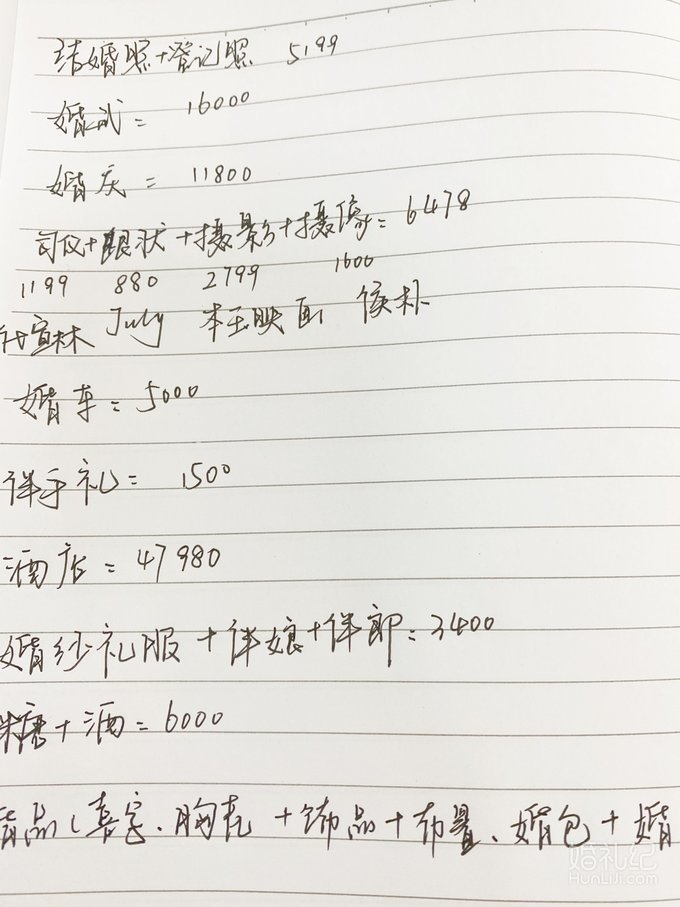 结婚照+登记照 5199
婚戒= 16000
婚庆= 11800
司仪+跟妆+摄影+摄像=6478
1199 880 2799 1600
宣林 July 本玉映画 侯朴
婚车=5000
伴手礼= 1500
酒店=47980
婚纱礼服+伴娘+伴郎=3400
糖+酒=6000
婚品(喜字、胸花+饰品+布置、婚包+婚
婚礼纪
HUNLIJI.COM